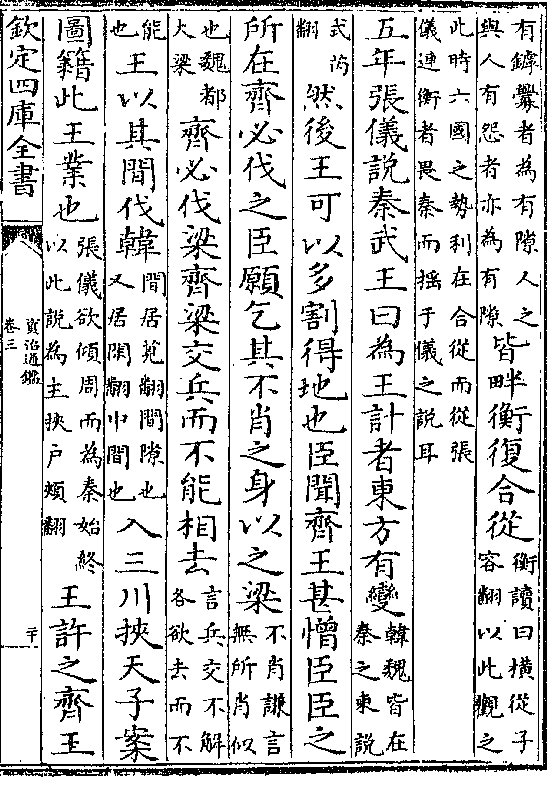 有罅釁者為有隙人之
與人有怨者亦為有隙
皆畔衡復合從
衡讀曰橫從子
容翻以此觀之
此時六國之勢利在合從而從張
儀連衡者畏秦而揺于儀之説耳
五年張儀說秦武王曰為王計者東方有變
韓魏皆在
秦之東說
式芮
翻
然後王可以多割得地也臣聞齊王甚憎臣臣之
所在齊必伐之臣願乞其不肖之身以之梁
不肖謙言
無所肖似
也魏都
大梁
齊必伐梁齊梁交兵而不能相去
言兵交不解
各欲去而不
能
也
王以其間伐韓
間居莧翻間隙也
又居閑翻中間也
入三川挾天子案
圖籍此王業也
張儀欲傾周而為秦始終
以此説為主挾户頰翻
王許之齊王
欽定四庫全書
資治通鑑
卷三
二十